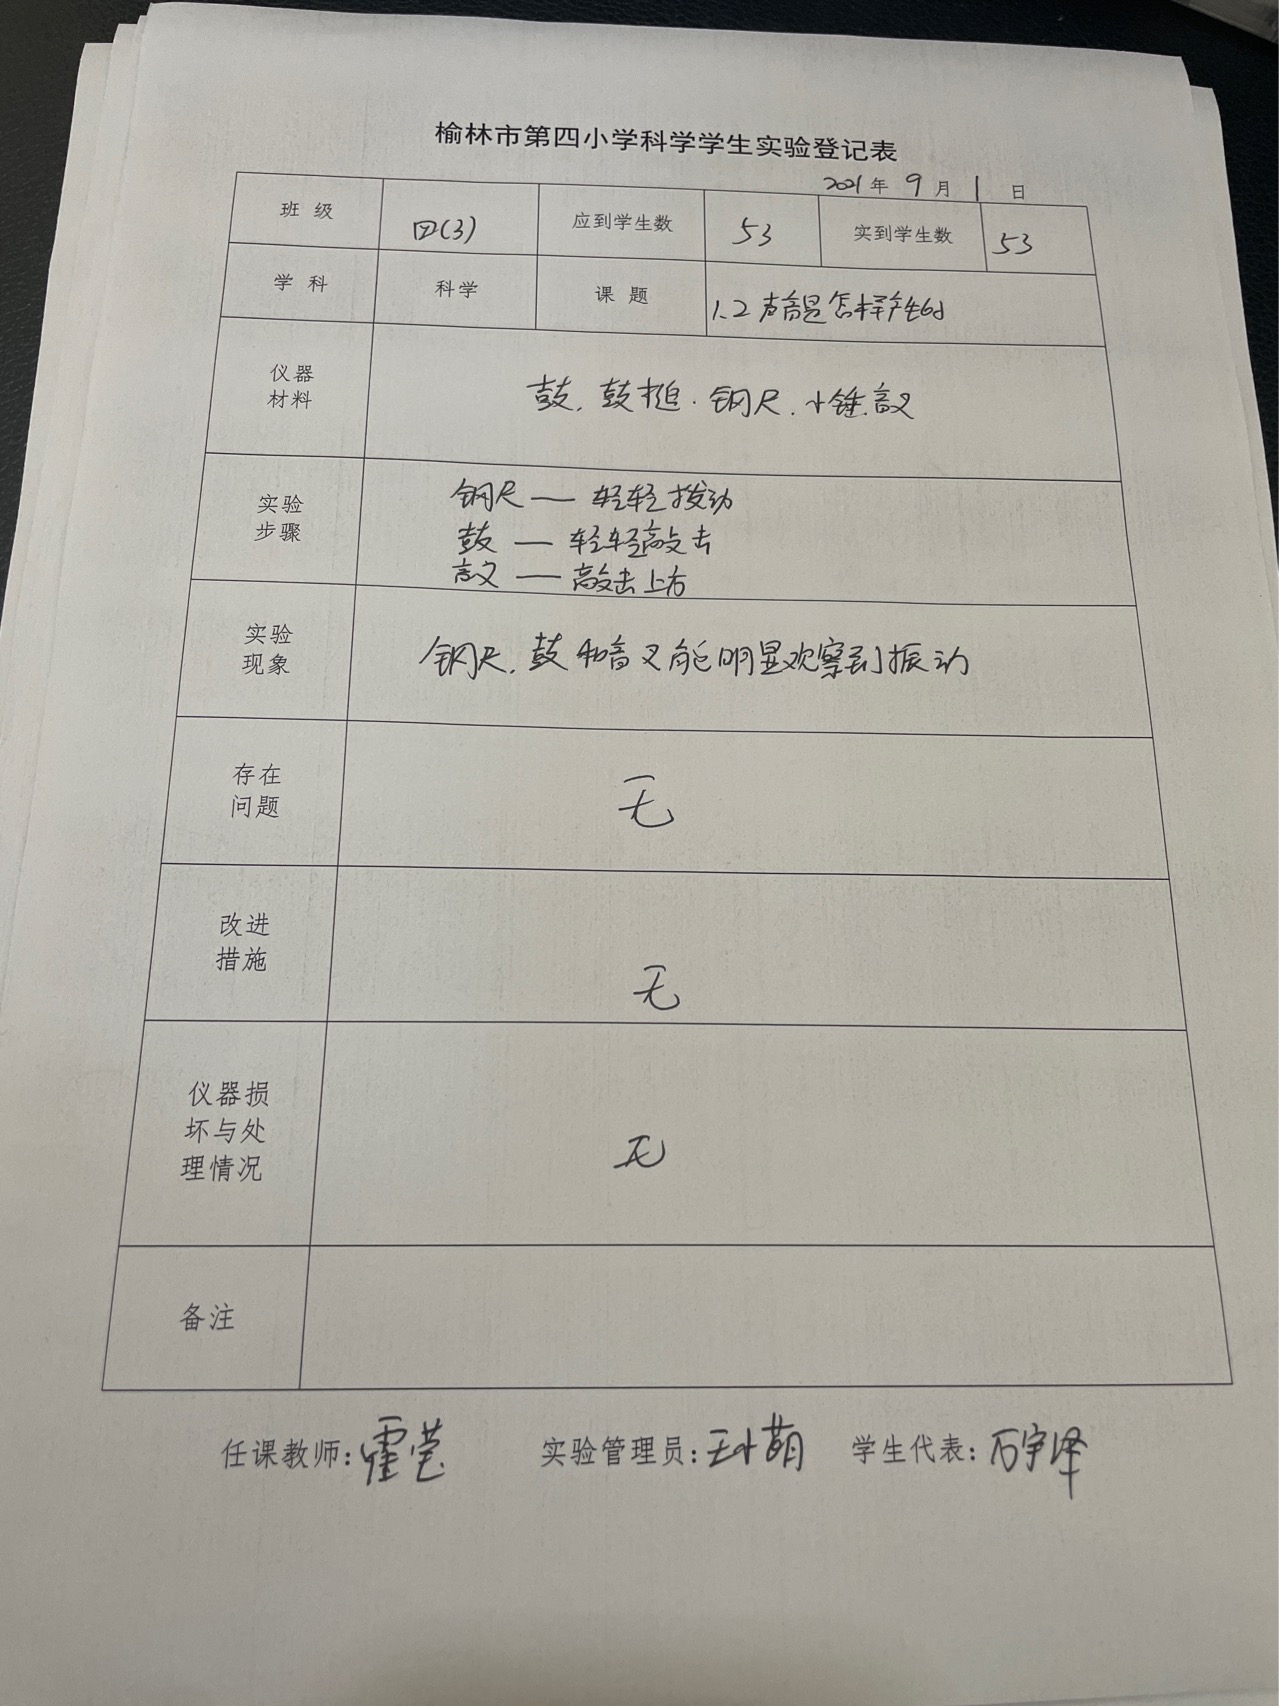 榆林市第四小学科学学生实验登记表
2021年9月1日
班级 四(3) 应到学生数 53 实到学生数 53
学科 科学 课题 1.2声音是怎样产生的
仪器
材料
鼓.鼓槌.钢尺.小锤.音叉
实验
步骤
钢尺——轻轻拨动
鼓——轻轻敲击
音叉——敲击上方
实验
现象
钢尺.鼓和音叉能明显观察到振动
存在
问题
无
改进
措施
无
仪器损
坏与处
理情况
无
备注
任课教师:霍莹 实验管理员:王小萌 学生代表:石宇泽